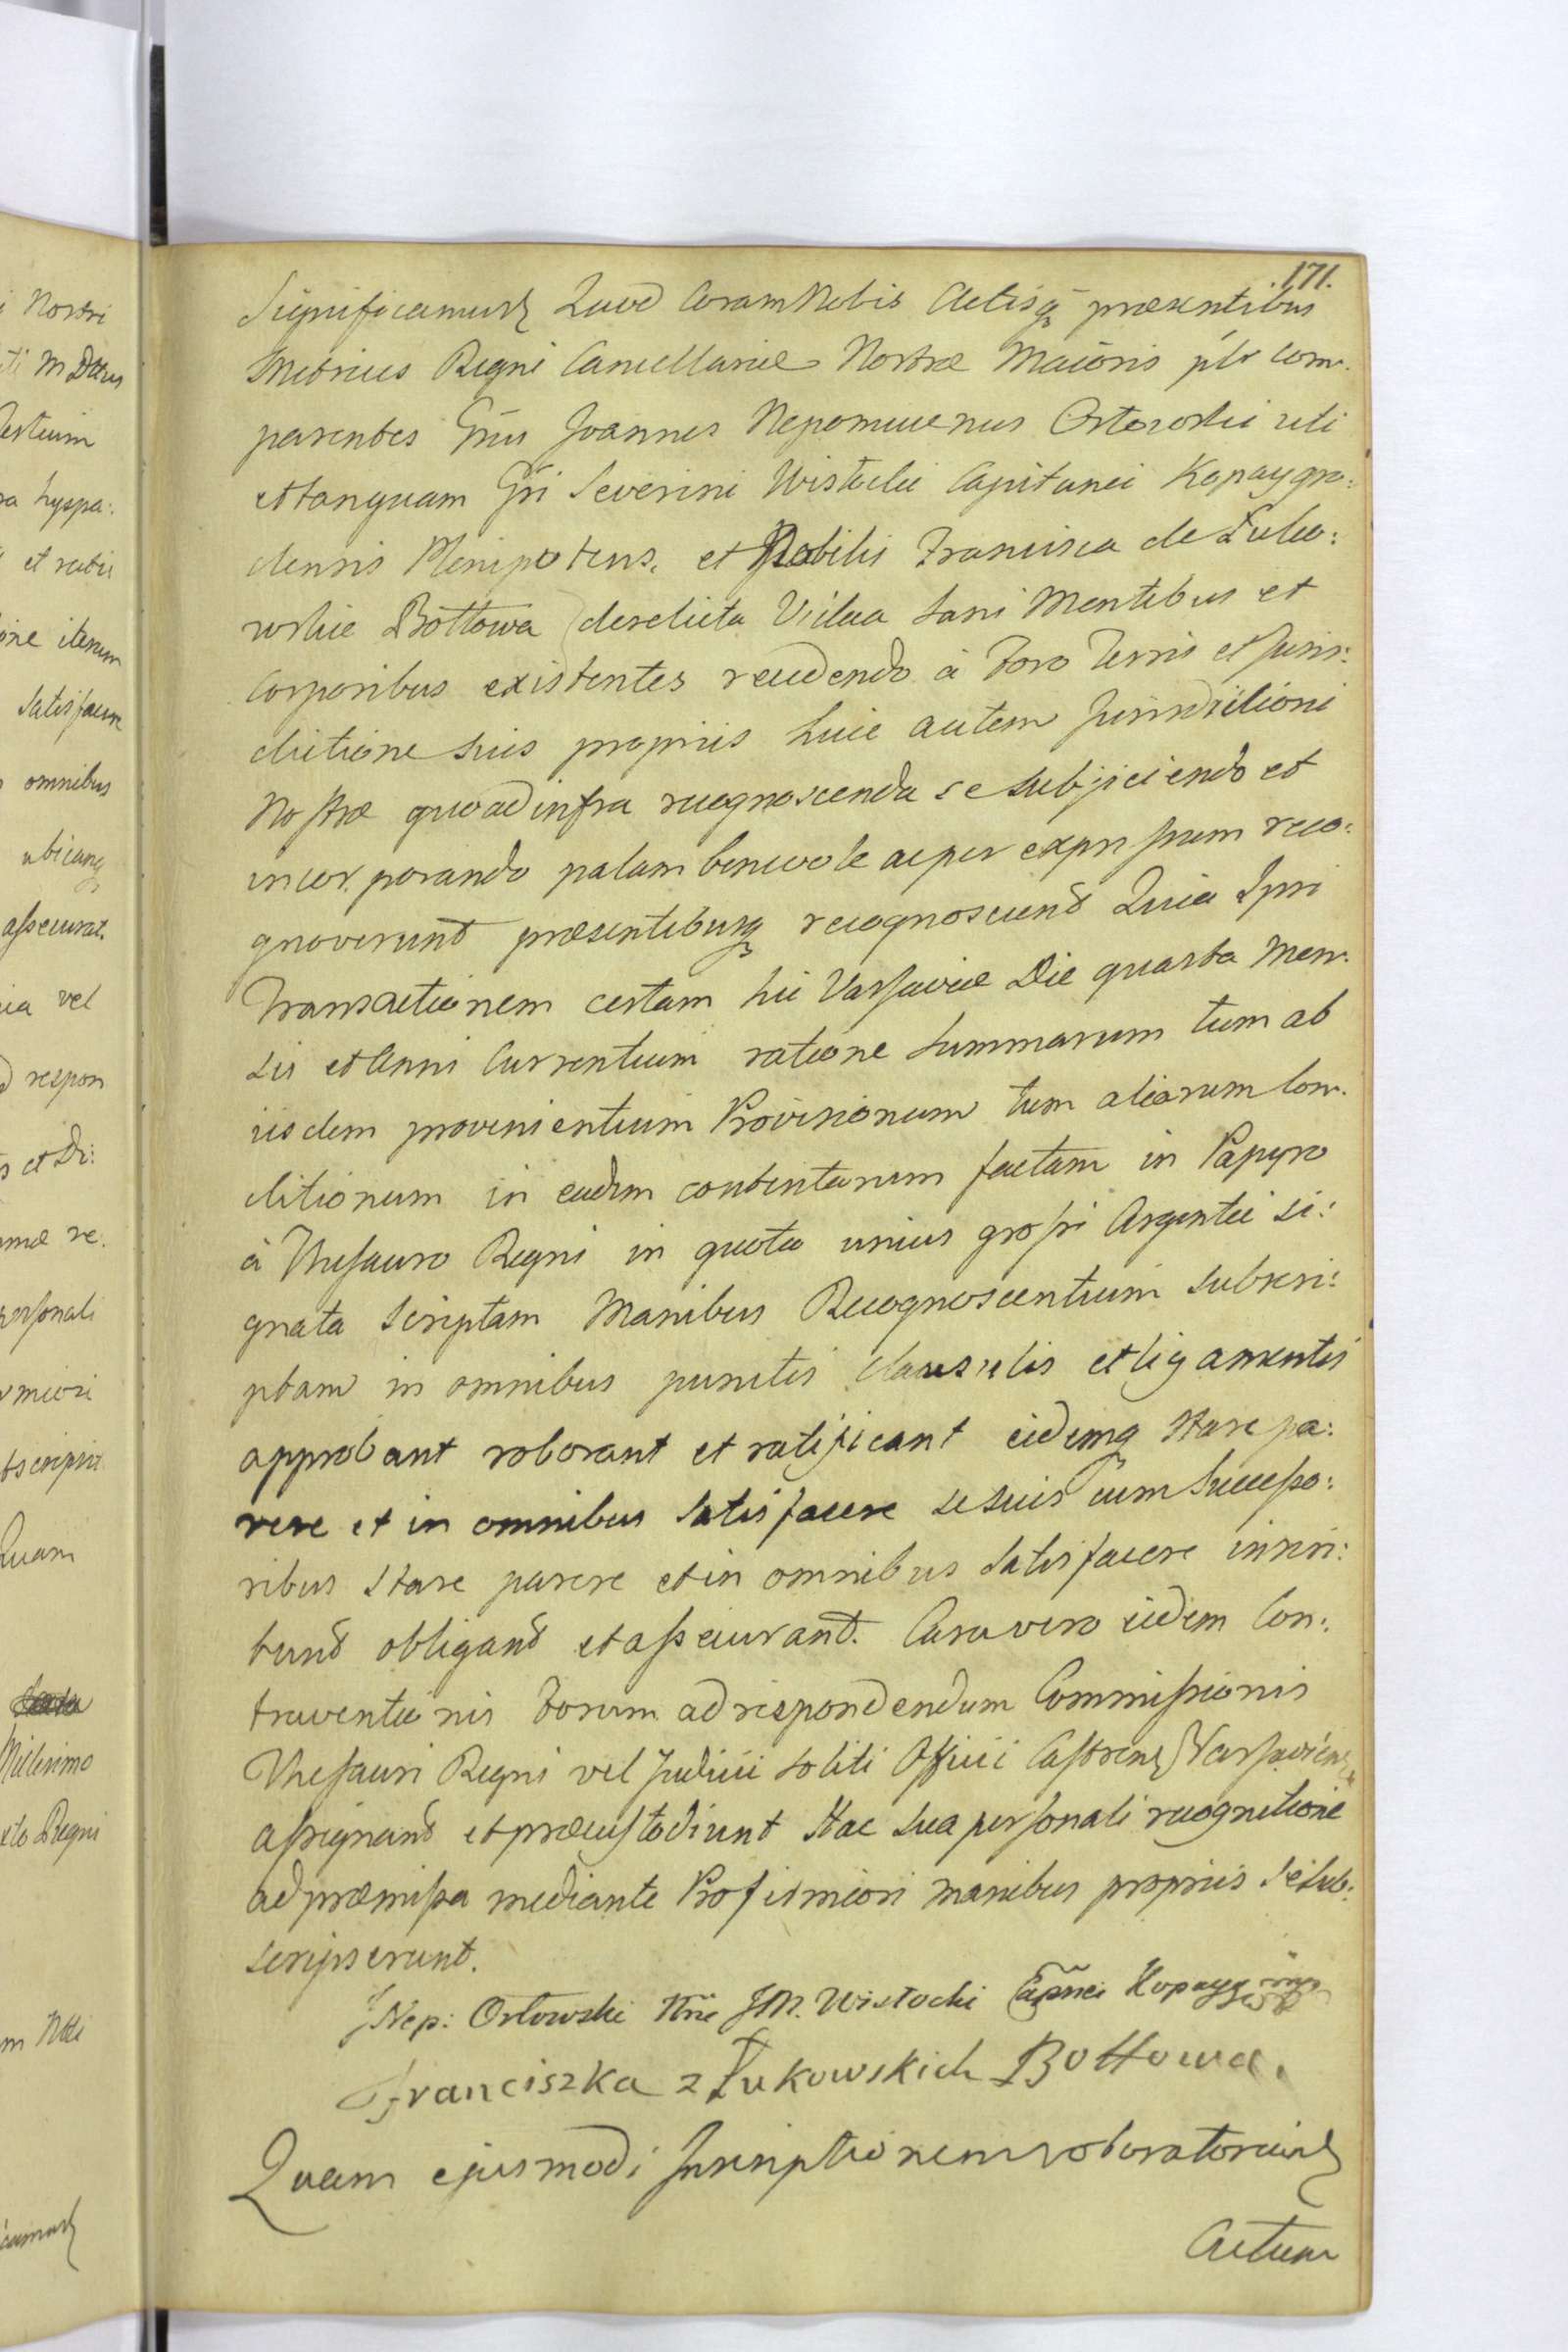 171.
Significamus Quod Coram Nobis Actisq̃ præsentibus
Metrices Regni Cancellariæ Nostræ Maioris plr com-
parentes Gnus Joannes Nepomucenus Orłowski uti
et tanquam Gsi Severini Wisłocki Capitanei Kopaygro:
densis Plenipotens, et Nobilis Francisca de Łuko:
wskie Bottowa derelicta Vidua Sani Mentibus et
Corporibus existentes recedendo à Foro Terris et Juris:
dictione suis propriis huic autem Jurisdictioni
Nostræ quoad infra recognoscenda se subjiciendo et
incorporando palam benevole ac per expressum reco:
gnoverunt præsentibusq̃ recognoscunt Quia Ipsi
Transactionem certam hic Varsaviæ Die quarta Men-
sis et Anni Currentium ratione Summarum tum ab
iisdem provenientium Provisionum tum aliarum Con-
ditionum in eadem contentarum factam in Papyro
à Thesauro Regni in quota unius grossi Argentei si:
gnata Scriptam Manibus Recognoscentium subscri:
ptam in omnibus punctis clausulis et ligamentis
approbant roborant et ratificant eidemq̃ Stare pa:
rere et in omnibus Satisfacere se suis cum Successo:
ribus Stare parere et in omnibus Satisfacere inscri:
bunt obligant et assecurant. Casu vero eidem Con:
traventionis Forum ad respondendum Commissionis
Thesauri Regni vel Judicii soliti Officii Castrens Varsaviens
assignant et præcustodiunt Hac sua personali recognitione
ad præmissa mediante Pro firmiori manibus propriis se sub:
scripserunt.
J Nep: Orłowski Nrie JM. Wisłocki Capnei Kopaygr
Franciszka z Łukowskich Bottowa.
Quam ejusmodi Inscriptionem roboratoriam
Actum
i Nostri
ti M Ducus
estium
ra hyspa:
et ratis
one iterum
Satisfacere
omnibus
ubicunq̃
assecurat.
ia vel
d respon
s et Di:
mæ re.
personali
rmiori
bscripsit
Quam
Millesimo
xto Regni
m Ntti
icamus